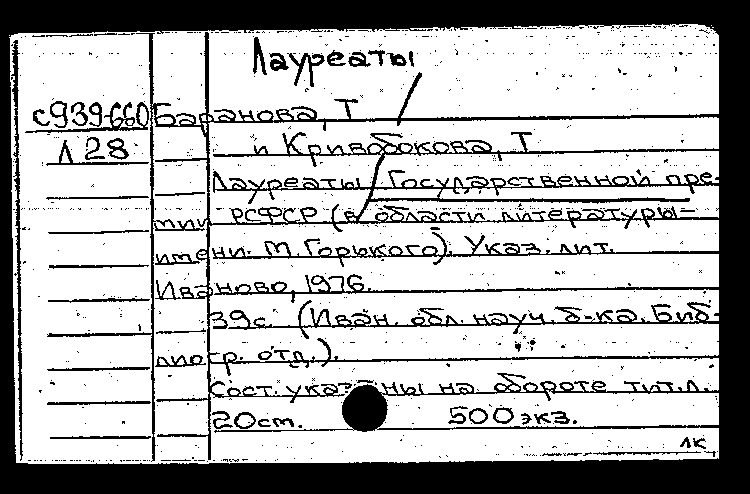 Лауреаты
с939-660 Баранова, Т
Л 28 и Кривобокова, Т
Лауреаты / Государственной пре-
мии РСФСР (в области литературы-
имени М. Горького). Указ. лит.
Иваново, 1976.
39с. (Иван. обл. науч. б-ка. Биб-
лиогр. отд.).
Сост. указаны на обороте тит. л.
20cm. 500 экз.
лк